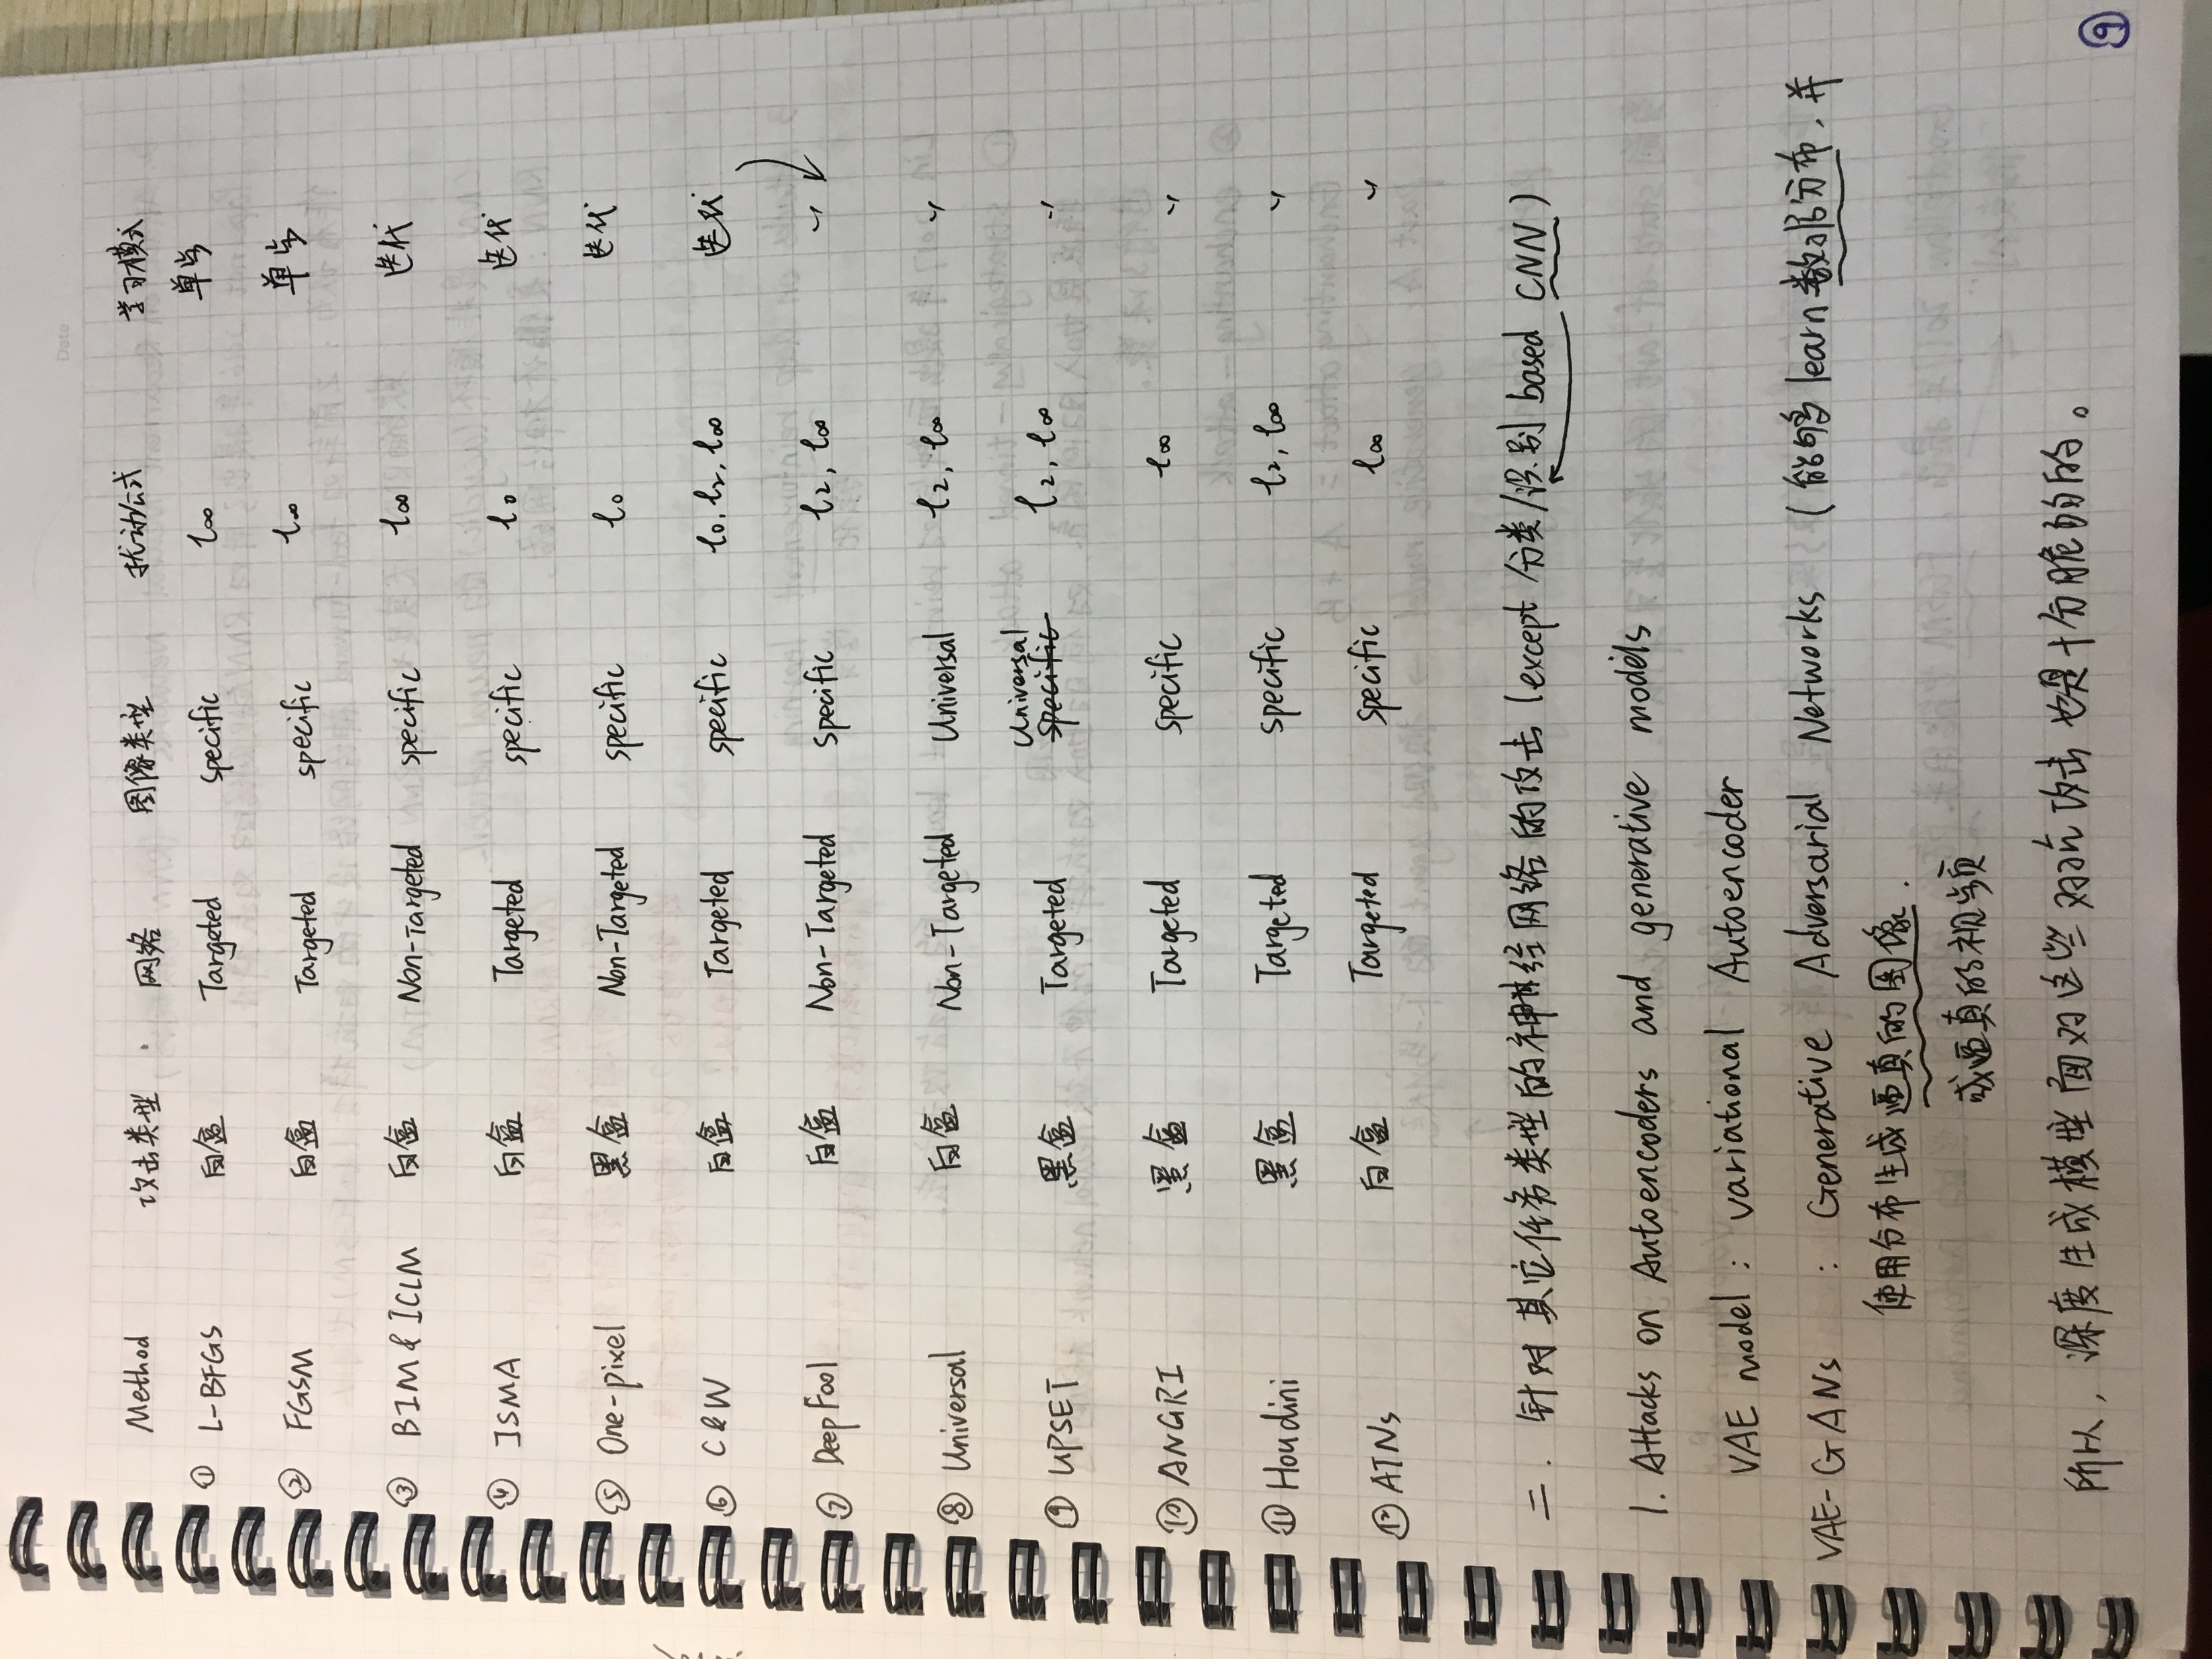 Date
Method 攻击类型 网络 图像类型 扰动公式 学习模式
① L-BFGS 白盒 Targeted Specific l∞ 单步
② FGSM 白盒 Targeted specific l∞ 单步
③ BIM & ICLM 白盒 Non-Targeted specific l∞ 迭代
④ JSMA 白盒 Targeted specific l₀ 迭代
⑤ One-pixel 黑盒 Non-Targeted specific l₀ 迭代
⑥ C&W 白盒 Targeted specific l₀, l₂, l∞ 迭代
⑦ DeepFool 白盒 Non-Targeted Specific l₂, l∞ 〃
⑧ Universal 白盒 Non-Targeted Universal l₂, l∞ 〃
⑨ UPSET 黑盒 Targeted Universal l₂, l∞ 〃
⑩ ANGRI 黑盒 Targeted specific l∞ 〃
⑪ Houdini 黑盒 Targeted specific l₂, l∞ 〃
⑫ ATNs 白盒 Targeted specific l∞ 〃
二. 针对其它任务类型的神经网络的攻击 (except 分类/识别 based CNN)
1. Attacks on Autoencoders and generative models
VAE model : variational Autoencoder
VAE-GANs : Generative Adversarial Networks (能够 learn 数据分布, 并
使用分布生成逼真的图像.
或逼真的视频
所以, 深度生成模型面对这些对抗攻击也是十分脆弱的。
9